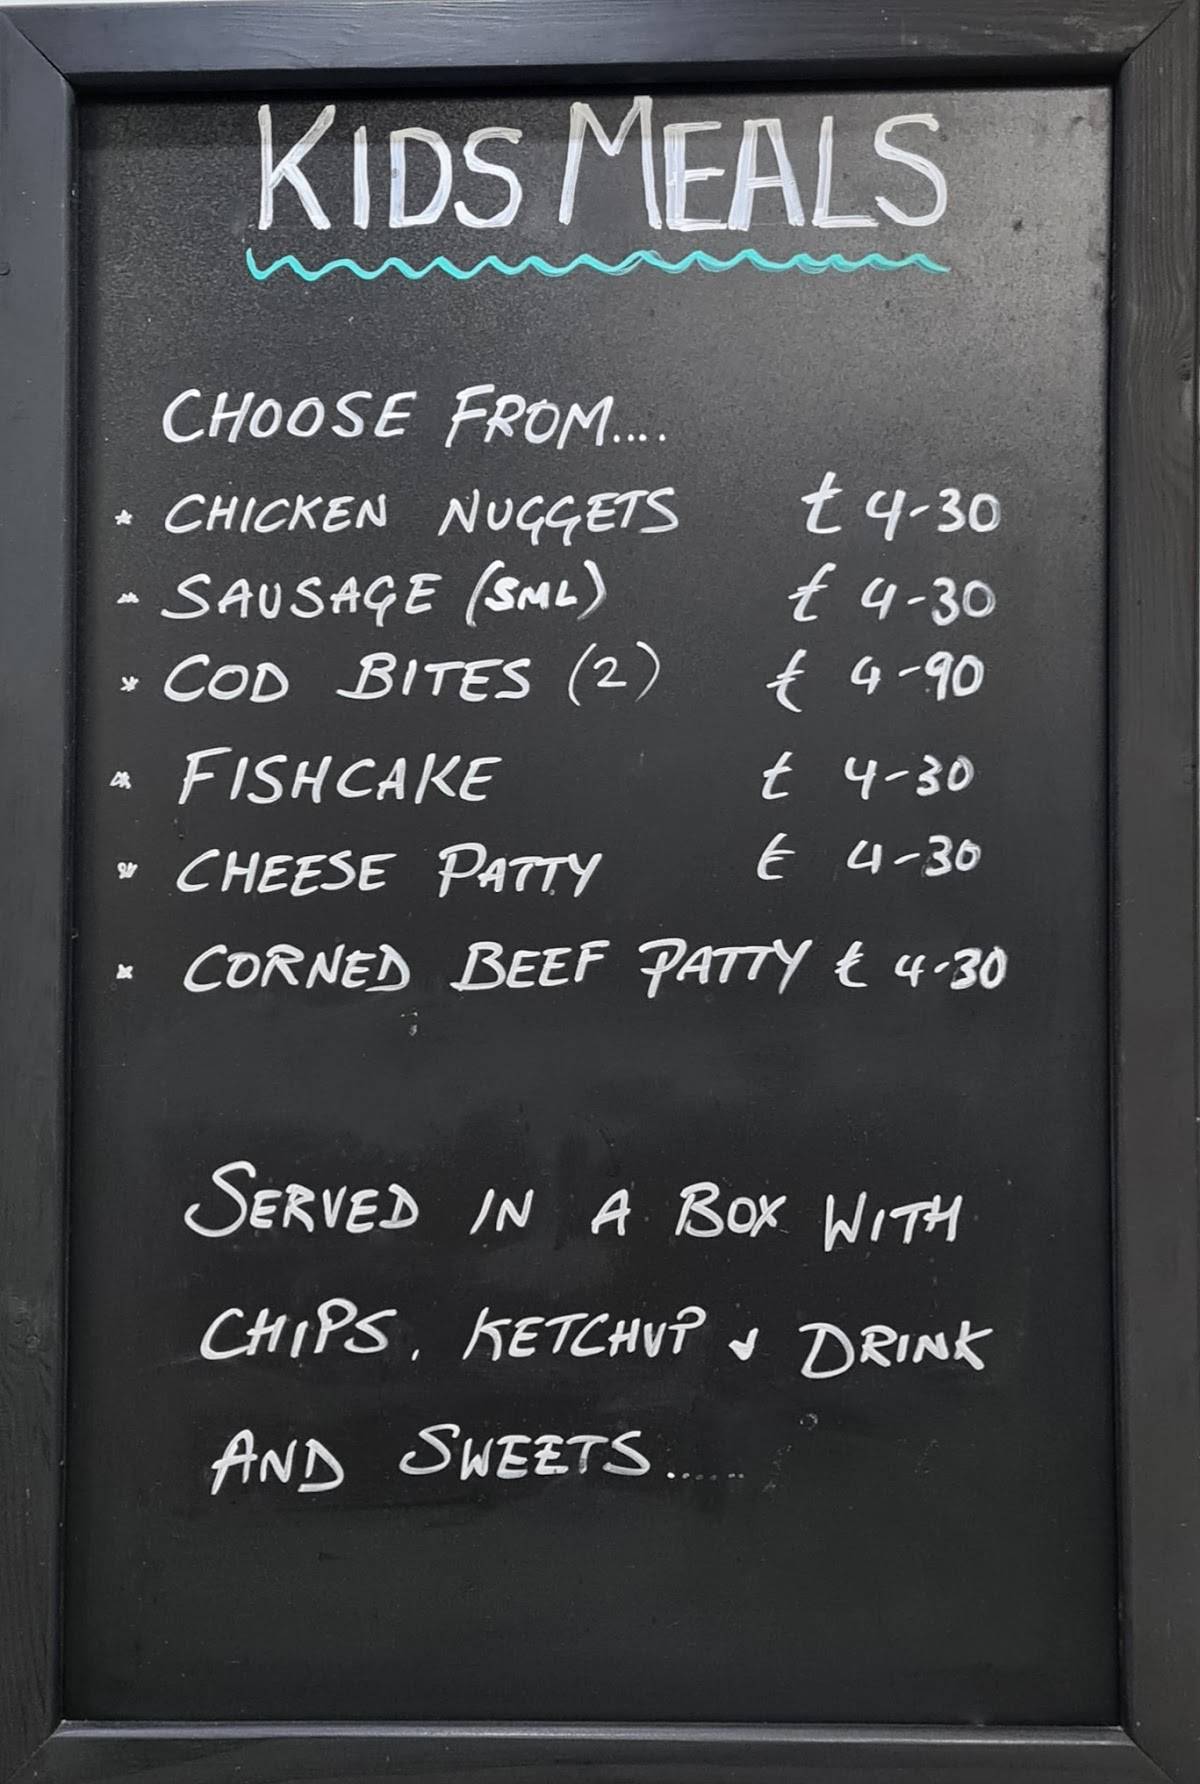 KIDS MEALS
CHOOSE FROM....
* CHICKEN NUGGETS £ 4-30
* SAUSAGE (SML) £ 4-30
* COD BITES (2) £ 4-90
* FISHCAKE £ 4-30
* CHEESE PATTY £ 4-30
* CORNED BEEF PATTY £ 4-30
SERVED IN A BOX WITH
CHIPS, KETCHUP & DRINK
AND SWEETS......